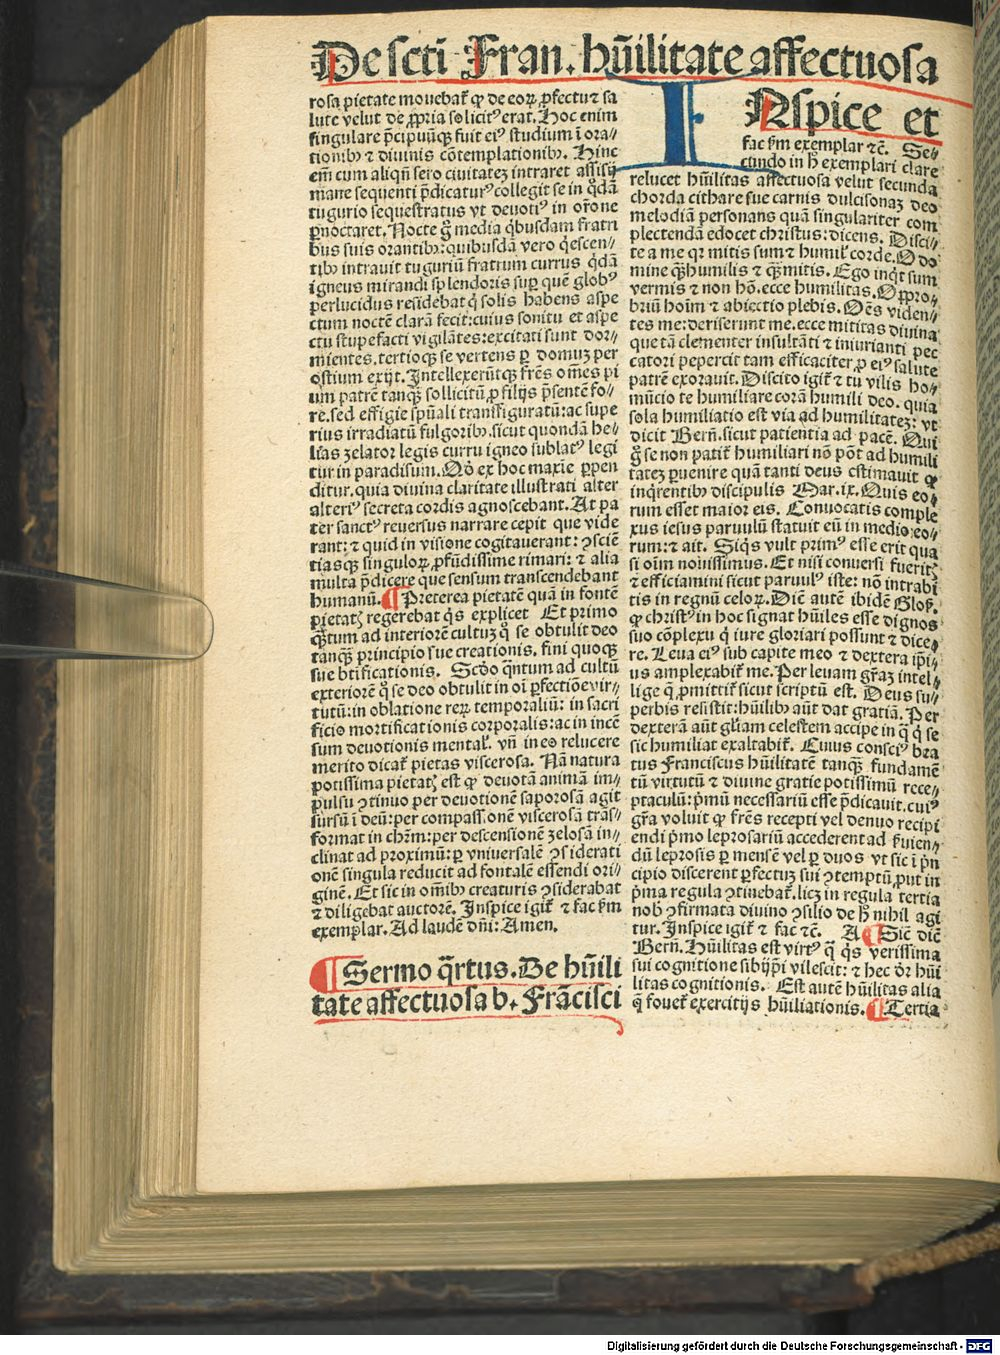 De scti Fran. hūilitate affectuosa
rosa pietate mouebat̄ ꝙ de eoꝝ ꝓfectu ⁊ sa
lute velut de ꝓpria solicitꝰ erat. Hoc enim
singulare p̄cipuūqꝫ fuit eiꝰ studium ī ora⸗
tionibꝰ ⁊ diuinis cōtemplationibꝰ. Hinc
em̄ cum aliqn̄ sero ciuitateꝫ intraret assisij
mane sequenti p̄dicaturꝰ collegit se in q̇dā
tugurio sequestratus vt deuotiꝰ in or̄one
ꝑnoctaret. Nocte g̊ media q̇busdam fratri
bus suis orantibꝰ: quibusdā vero q̇escen⸗
tibꝰ intrauit tuguriū fratrum currus q̇dā
igneus mirandi splendoris suꝑ quē globꝰ
perlucidus residebat q̇ solis habens aspe
ctum noctē clarā fecit: cuius sonitu et aspe
ctu stupefacti vigilātes: excitati sunt dor⸗
mientes. tertioqꝫ se vertens ꝑ domuꝫ per
ostium exijt. Intellexerūtqꝫ fr̄es om̄es pi
um patrē tanqꝫ sollicitū ꝓ filijs p̄sentē fo⸗
re. sed effigie spūali transfiguratū: ac supe
rius irradiatū fulgoribꝰ. sicut quondā he⸗
lias zelator legis curru igneo sublatꝰ legi
tur in paradisum. Qd̊ ex hoc maxīe ꝑpen
ditur. quia diuina claritate illustrati alter
alteriꝰ secreta cordis agnoscebant. At pa
ter sanctꝰ reuersus narrare cepit que vide
rant: ⁊ quid in visione cogitauerant: ꝯsciē
tiasqꝫ singuloꝝ ꝓfūdissime rimari: ⁊ alia
multa p̄dicere que sensum transcendebant
humanū. ¶ Preterea pietatē quā in fontē
pietatꝭ regerebat q̇s explicet Et primo
qꝫtum ad interiorē cultuꝫ q̊ se obtulit deo
tanqꝫ principio sue creationis. fini quoqꝫ
sue btificationis. Scd̊o qn̄tum ad cultū
exteriorē q̊ se deo obtulit in oī ꝑfectiōe vir⸗
tutū: in oblatione reꝝ temporaliū: in sacri
ficio mortificationis corporalis: ac in incē
sum deuotionis mental'. vn̄ in eo relucere
merito dicat̄ pietas viscerosa. Nā natura
potissima pietatꝭ est ꝙ deuotā animā im⸗
pulsu ꝯtinuo per deuotionē saporosā agit
sursū ī deū: per compassionē viscerosā trās⸗
format in chr̄m: per descensionē zelosā in⸗
clinat ad proximū: ꝑ vniuersalē ꝯsiderati
onē singula reducit ad fontalē essendi ori⸗
ginē. Et sic in om̄ibꝰ creaturis ꝯsiderabat
⁊ diligebat auctorē. Inspice igit̄ ⁊ fac s̄m
exemplar. Ad laudē dn̄i: Amen.
¶ Sermo q̄rtus. De hūili
tate affectuosa b. Frācisci
I
Nspice et
fac s̄m exemplar ⁊c̄. Se⸗
cundo in h̊ exemplari clare
relucet hūilitas affectuosa velut secunda
chorda cithare sue carnis dulcisonaꝫ deo
melodiā personans quā singulariter com
plectendā edocet christus: dicens. Disci⸗
te a me qꝛ mitis sum ⁊ humil' corde. O do
mine qꝫ humilis ⁊ qꝫ mitis. Ego inq̇t sum
vermis ⁊ non hō. ecce humilitas. Oppro⸗
briū hoīm ⁊ abiectio plebis. Oēs viden⸗
tes me: deriserunt me. ecce mititas diuina
que tā clementer insultāti ⁊ iniurianti pec
catori pepercit tam efficaciter ꝓ eiꝰ salute
patrē exorauit. Discito igit̄ ⁊ tu vilis ho⸗
mūcio te humiliare corā humili deo. quia
sola humiliatio est via ad humilitateꝫ: vt
dicit Bern̄. sicut patientia ad pacē. Qui
g̊ se non patit̄ humiliari nō pōt ad humili
tateꝫ ꝑuenire quā tanti deus estimauit ꝙ
inq̇rentibꝰ discipulis Mar. ix. Quis eo⸗
rum esset maior eis. Conuocatis comple
xus iesus paruulū statuit eū in medio eo⸗
rum: ⁊ ait. Siq̇s vult primꝰ esse erit qua
si oīm nouissimus. Et nisi conuersi fueritꝭ
⁊ efficiamini sicut paruulꝰ iste: nō intrabi
tis in regnū celoꝝ. Dic̄ autē ibidē Glos̄.
ꝙ christꝰ in hoc signat hūiles esse dignos
suo cōplexu q̇ iure gloriari possunt ⁊ dice⸗
re. Leua eiꝰ sub capite meo ⁊ dextera ip̄i⸗
us amplexabit̄ me. Per leuam gr̄aꝫ intel⸗
lige q̄ ꝓmittit̄ sicut scriptū est. Deus su⸗
perbis resistit: hūilibꝰ aūt dat gratiā. Per
dexterā aūt gl̄iam celestem accipe in q̄ q̇ se
sic humiliat exaltabit̄. Cuius consciꝰ bea
tus Franciscus hūilitatē tanqꝫ fundamē
tū virtutū ⁊ diuine gratie potissimū rece⸗
ptaculū: p̄mū necessariū esse p̄dicauit. cuiꝰ
gr̄a voluit ꝙ fr̄es recepti vel denuo recipi
endi p̄mo leprosariū accederent ad s̄uien⸗
dū leprosis ꝑ mensē vel ꝑ duos vt sic ī p̄n
cipio discerent ꝑfectuꝫ sui ꝯtemptū ꝓut in
p̄ma regula ꝯtinebat̄. licꝫ in regula tertia
nob̄ ꝯfirmata diuino ꝯsilio de h̊ nihil agi
tur. Inspice igit̄ ⁊ fac ⁊c̄. A ¶ Sic̄ dic̄
Bern̄. Hūilitas est virtꝰ q̄ q̇s verissima
sui cognitione sibijp̄i vilescit: ⁊ hec d̄r hūi
litas cognitionis. Est autē hūilitas alia
q̄ fouet̄ exercitijs hūiliationis. ¶ Tertia
Digitalisierung gefördert durch die Deutsche Forschungsgemeinschaft - DFG